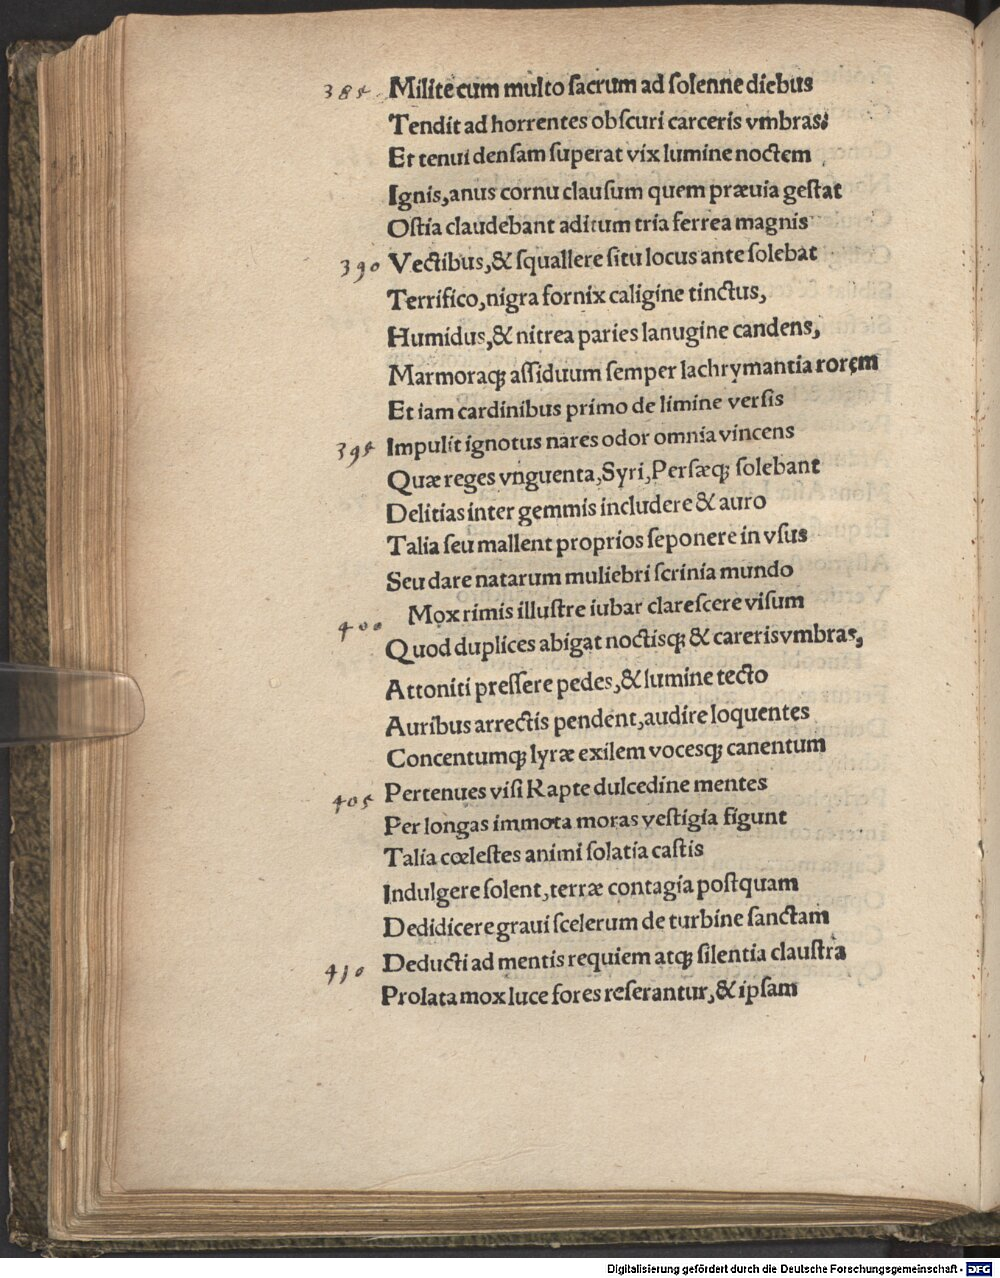 385 Milite cum multo ſacrum ad ſolenne diebus
Tendit ad horrentes obſcuri carceris vmbras:
Et tenui denſam ſuperat vix lumine noctem
Ignis, anus cornu clauſum quem præuia geſtat
Oſtia claudebant aditum tria ferrea magnis
390 Vectibus, & ſquallere ſitu locus ante ſolebat
Terrifico, nigra fornix caligine tinctus,
Humidus, & nitrea paries lanugine candens,
Marmoraqꝫ aſſiduum ſemper lachrymantia rorem
Et iam cardinibus primo de limine verſis
395 Impulit ignotus nares odor omnia vincens
Quæ reges vnguenta, Syri, Perſæqꝫ ſolebant
Delitias inter gemmis includere & auro
Talia ſeu mallent proprios ſeponere in vſus
Seu dare natarum muliebri ſcrinia mundo
400 Mox rimis illuſtre iubar clareſcere viſum
Quod duplices abigat noctisqꝫ & careris vmbras,
Attoniti preſſere pedes, & lumine tecto
Auribus arrectis pendent, audire loquentes
Concentumqꝫ lyræ exilem vocesqꝫ canentum
405 Pertenues viſi Rapte dulcedine mentes
Per longas immota moras veſtigia figunt
Talia cœleſtes animi ſolatia caſtis
Indulgere ſolent, terræ contagia poſtquam
Dedidicere graui ſcelerum de turbine ſanctam
410 Deducti ad mentis requiem atqꝫ ſilentia clauſtra
Prolata mox luce fores reſerantur, & ipſam
Digitalisierung gefördert durch die Deutsche Forschungsgemeinschaft - DFG